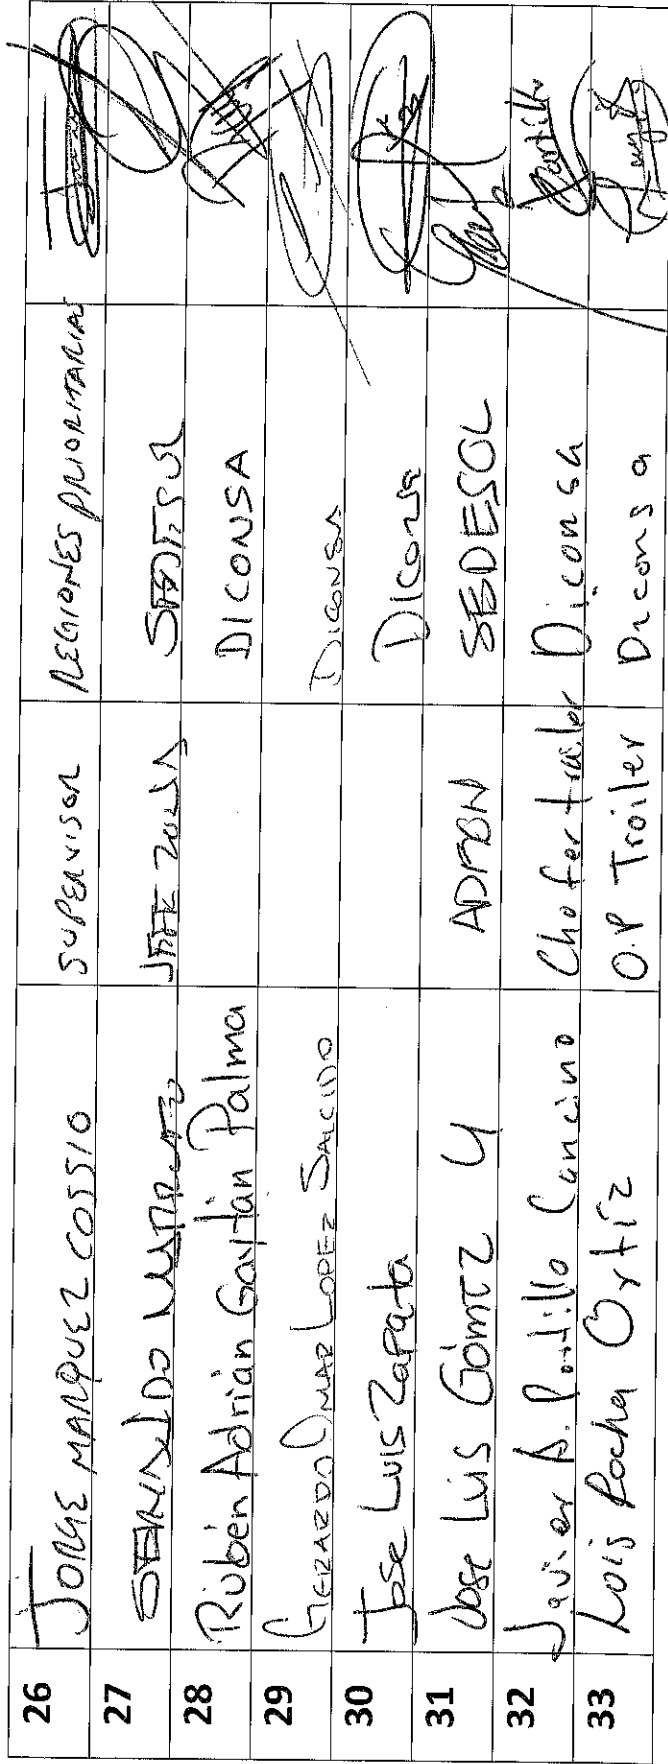 26 JORGE MARQUEZ COSSIO SUPERVISOR REGIONES PRIORITARIAS
27 JEFE SEDESOL
28 Rubén Adrian Gaytán Palma DICONSA
29 GERARDO OMAR LOPEZ SALCIDO DICONSA
30 Jose Luis Zapata Diconsa
31 Jose Luis Gómez Y ADMON SEDESOL
32 Javier A. Portillo Cancino Chofer trailer Diconsa
33 Luis Rocha Ortíz O.P Trailer Diconsa